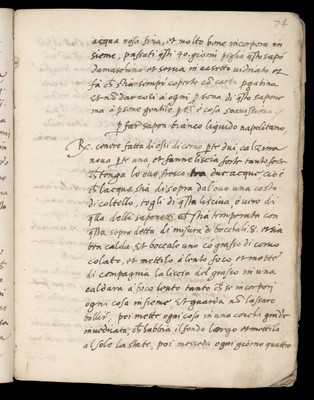 74
acqua rosa fina, et molto bene incorpora in
sieme, passati q̃sti 40 giorni piglia q̃sto sapõ
damaschino et serva in vasetto vidriato et
fa ch̃ stia sempre coperto cõ carta pegatina
et nõ dar così à ogni psona di q̃sto sapone
ma à psone gentile pch̃ è cosa soavissima
p far sapon bianco liquido napolitano
℞. cenere fatta di ossi di corno pte dui calzina
nova pte una, et fanne liscia forte tanto forte
ch̃ tenga lo ovo fresco tra due acque cio è
ch̃ l'acqua stia di sopra dal ovo una costa
di coltello, togli di q̃sta lisciva ò vero di
q̃lla delli saponeri ch̃ sia temperata con
q̃sta sopra detta di misura di boccali 8. et sia
ben calda, et boccale uno cõ grasso di cervo
colato, et mettilo à lento foco et mette
di compagnia la liscia del grasso in una
caldara à foco lento tanto ch̃ se incorpori
ogni cosa insieme et guarda nõ lassare
bollir, poi mette ogni cosa in una concha grande
invedriata, ch̃ habbia il fondo largo et mettila
al sole la state, poi messeda ogni giorno quattro